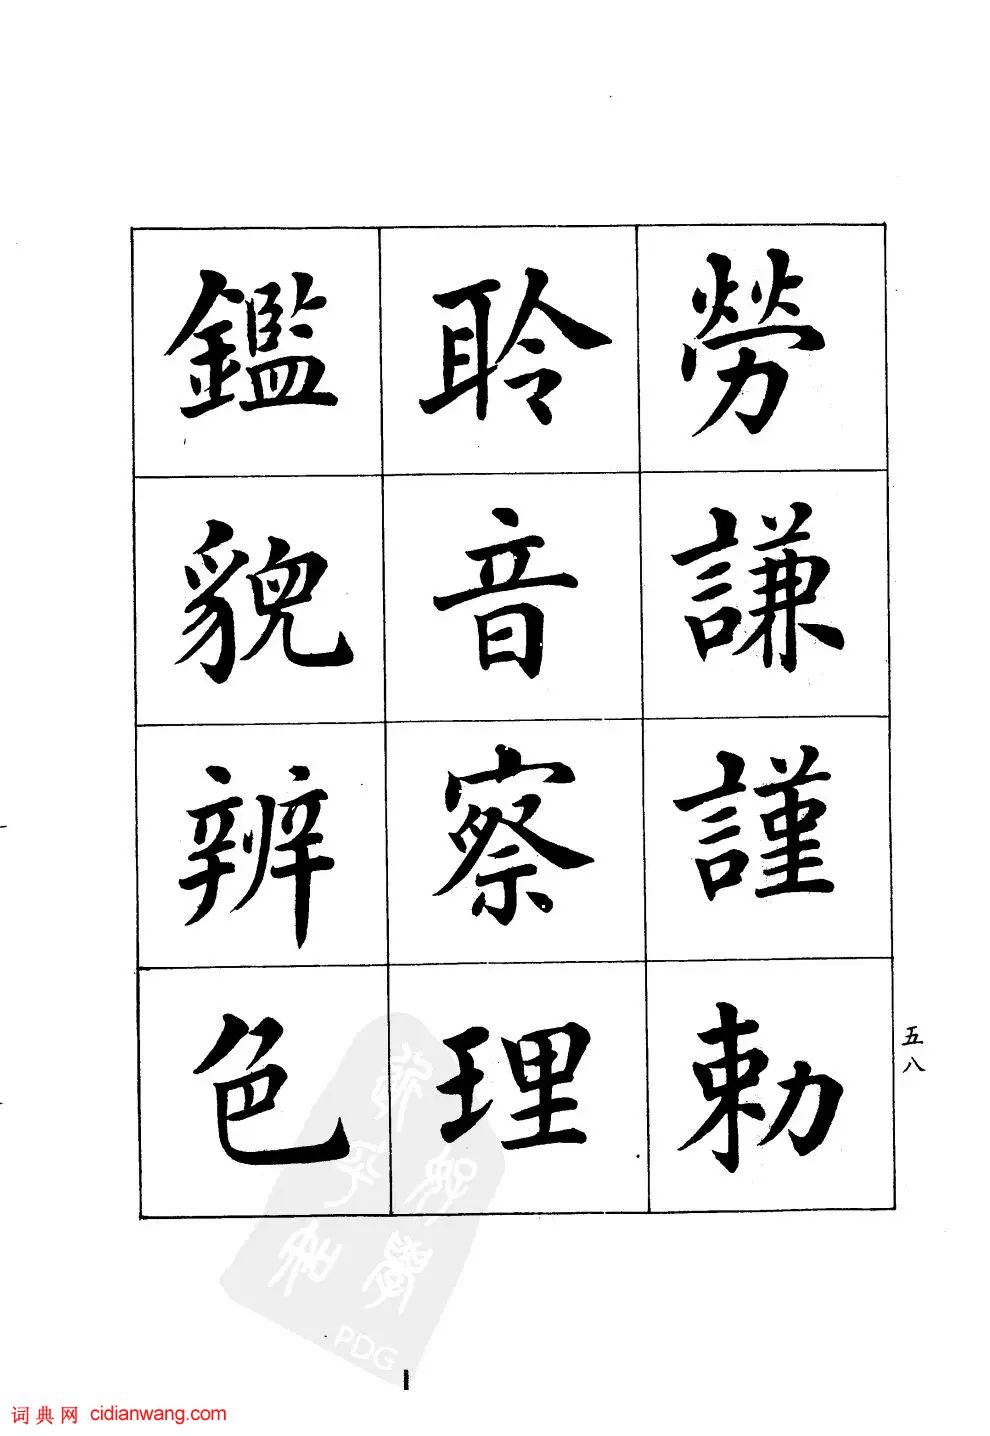 勞謙謹勅
聆音察理
鑑貌辨色
五八
PDG
词典网 cidianwang.com